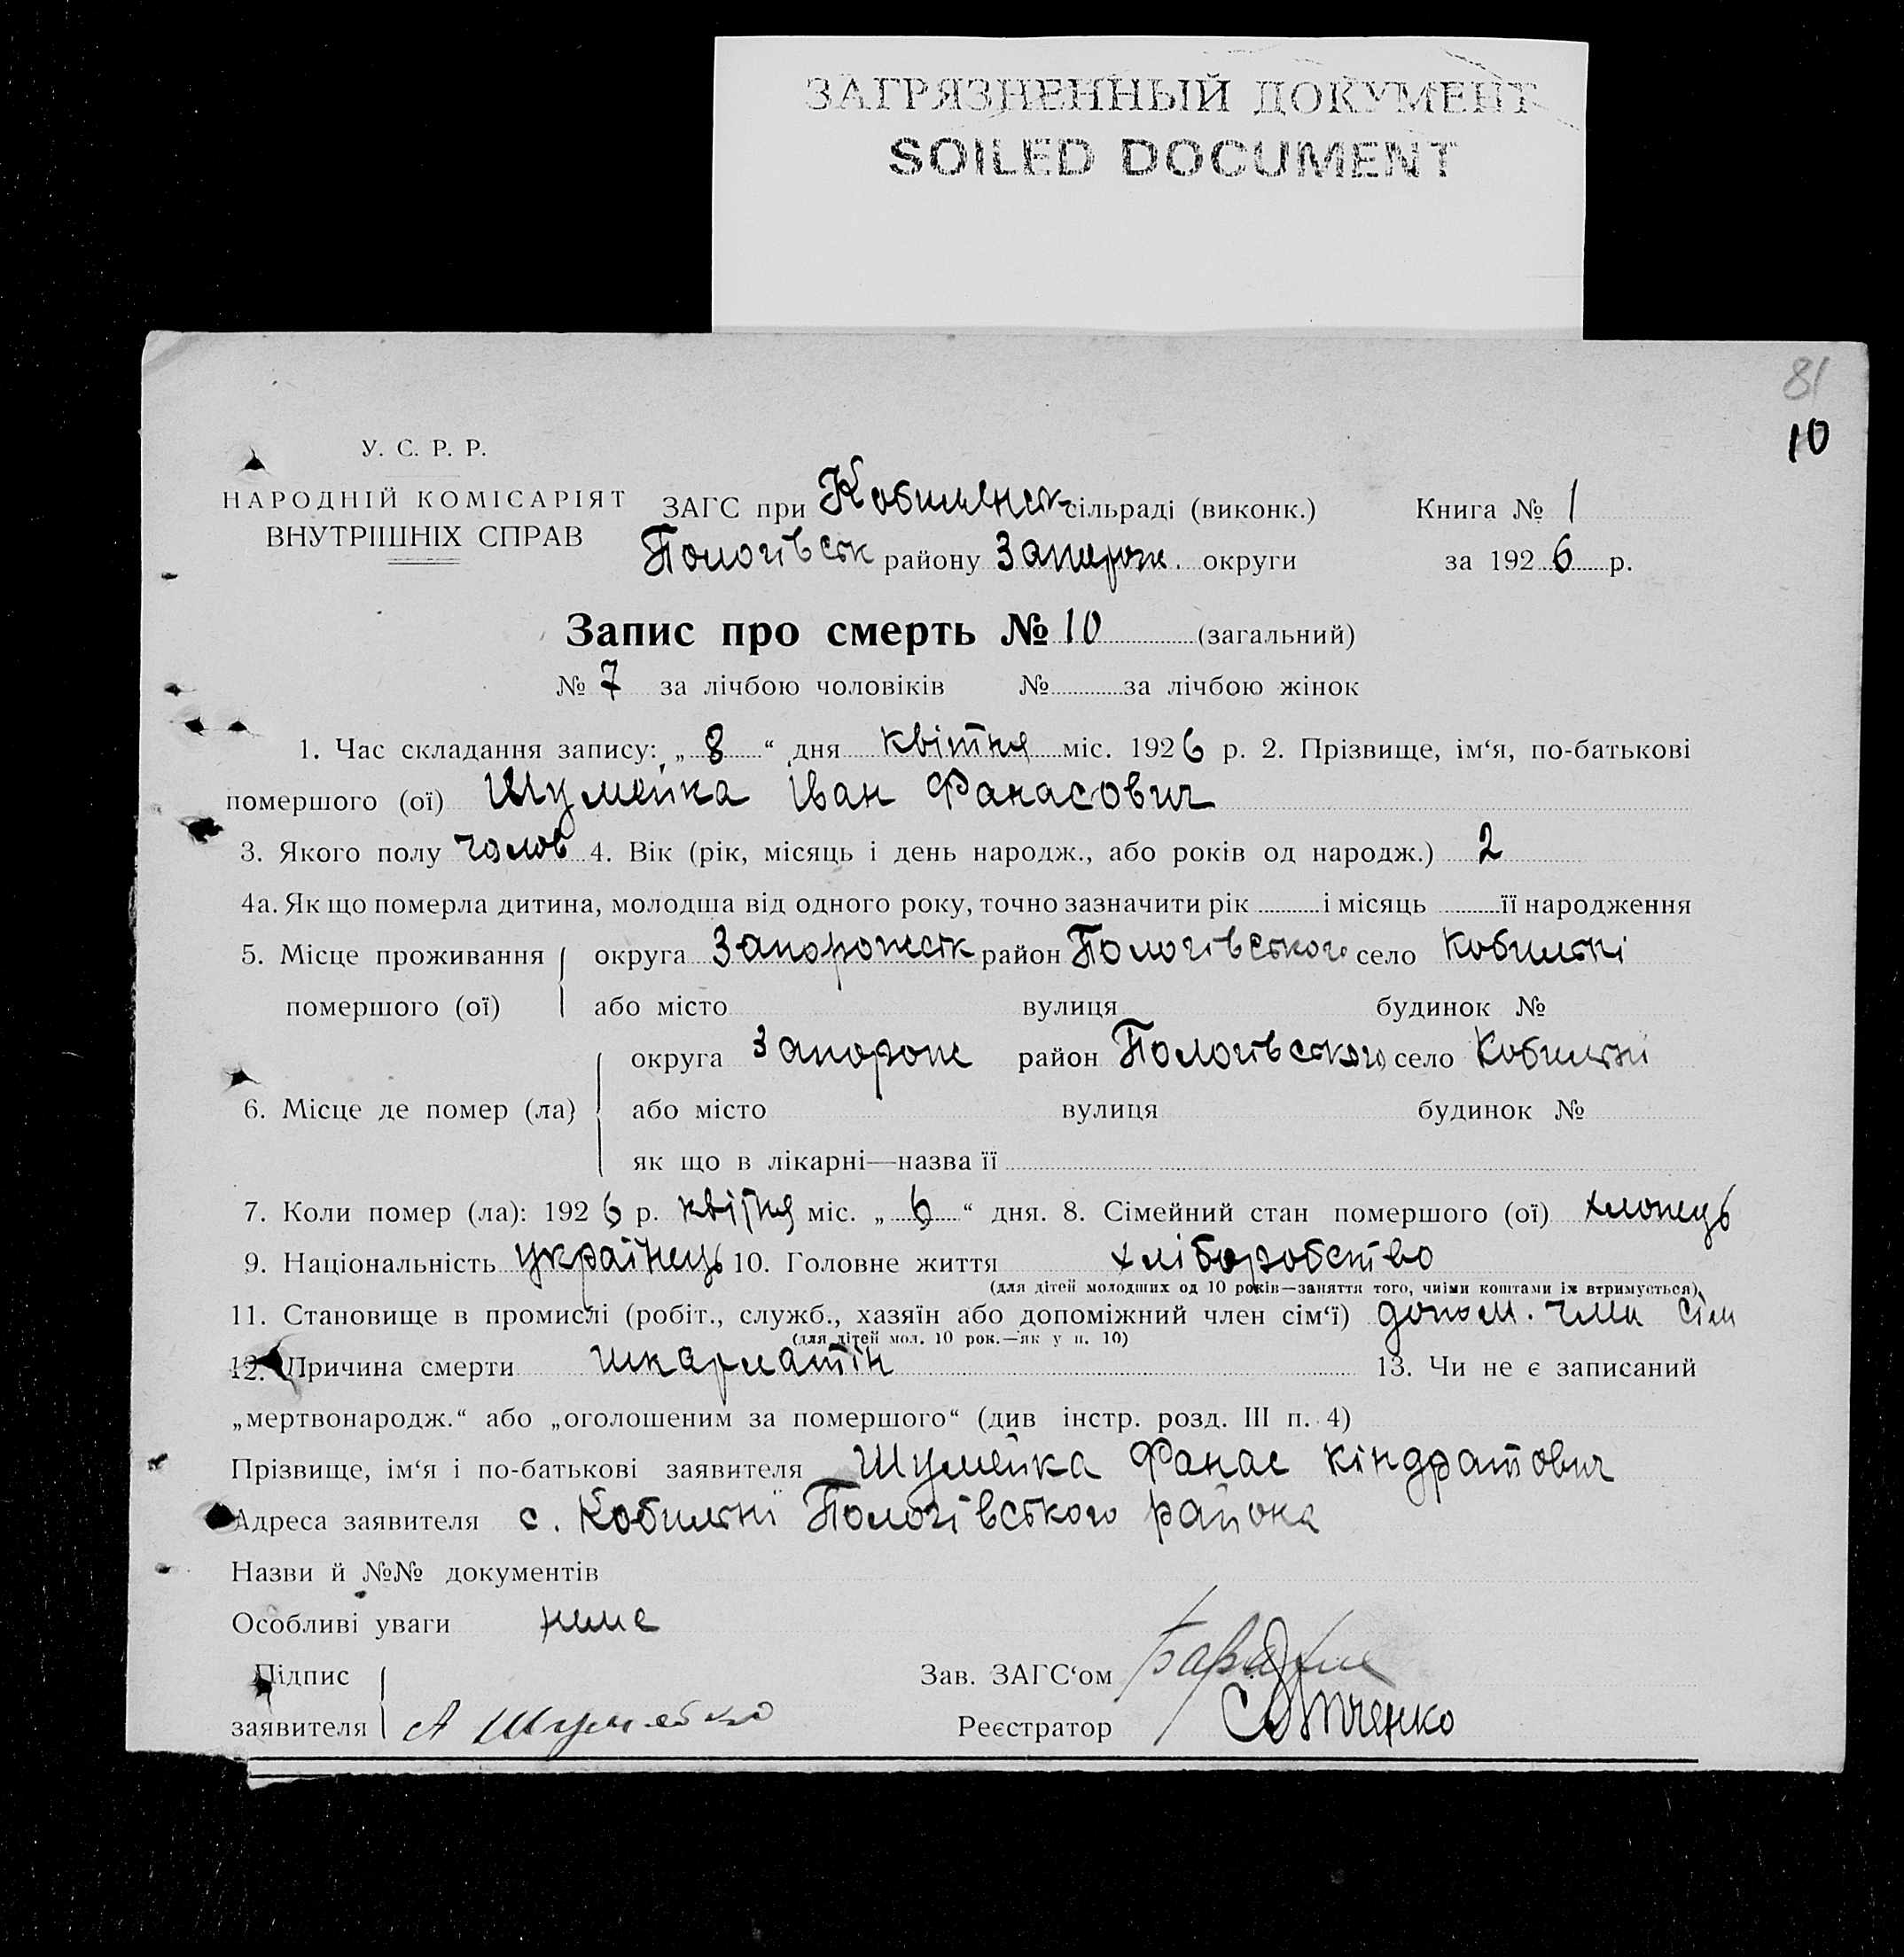 ЗАГРЯЗНЕННЫЙ ДОКУМЕНТ
SOILED DOCUMENT
81
10
У. С. Р. Р.
НАРОДНІЙ КОМІСАРІЯТ
ВНУТРІШНІХ СПРАВ
ЗАГС при сільраді (виконк.) Книга № 1
Пологівськ району Запорож. округи за 1926 р.
Запис про смерть № 10 (загальний)
№ 7 за лічбою чоловіків № за лічбою жінок
1. Час складання запису: „8“ дня квітня міс. 1926 р. 2. Прізвище, ім‘я, по-батькові
помершого (ої) Шумейка Іван Фанасович
3. Якого полу чолов 4. Вік (рік, місяць і день народж., або років од народж.) 2
4а. Як що померла дитина, молодша від одного року, точно зазначити рік і місяць її народження
5. Місце проживання округа Запорожськ район Пологівського село
помершого (ої) або місто вулиця будинок №
округа Запорож район Пологівського село
6. Місце де помер (ла) або місто вулиця будинок №
як що в лікарні—назва її
7. Коли помер (ла): 1926 р. квітня міс. „6“ дня. 8. Сімейний стан помершого (ої) хлопець
9. Національність українець 10. Головне життя хліборобство
(для дітей молодших од 10 років—заняття того, чиїми коштами їх втримується)
11. Становище в промислі (робіт., служб., хазяїн або допоміжний член сім‘ї) допом. член сім
(для дітей мол. 10 рок.—як у п. 10)
12. Причина смерти шкарлатін 13. Чи не є записаний
„мертвонародж.“ або „оголошеним за помершого“ (див інстр. розд. III п. 4)
Прізвище, ім‘я і по-батькові заявителя Шумейка Фанас Кіндратович
Адреса заявителя с. Пологівського района
Назви й №№ документів
Особливі уваги нема
Підпис Зав. ЗАГС‘ом
заявителя А Шумейко Реєстратор